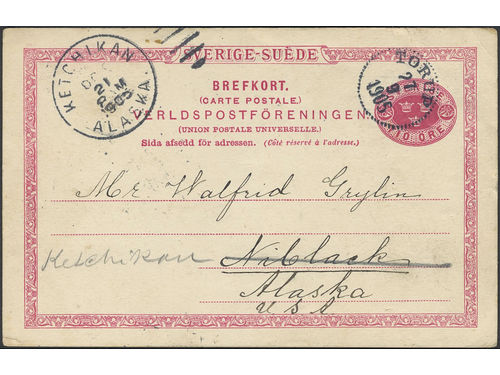 SVERIGE-SUÈDE
BREFKORT.
(CARTE POSTALE.)
VERLDSPOSTFÖRENINGEN
(UNION POSTALE UNIVERSELLE.)
Sida afsedd för adressen. (Côté réservé à l'adresse.)
KETCHIKAN
21
1905
ALASKA.
TORUP
21
1905
10 ÖRE
Mr Walfrid Grylin
Ketchikan Niblack
Alaska
USA